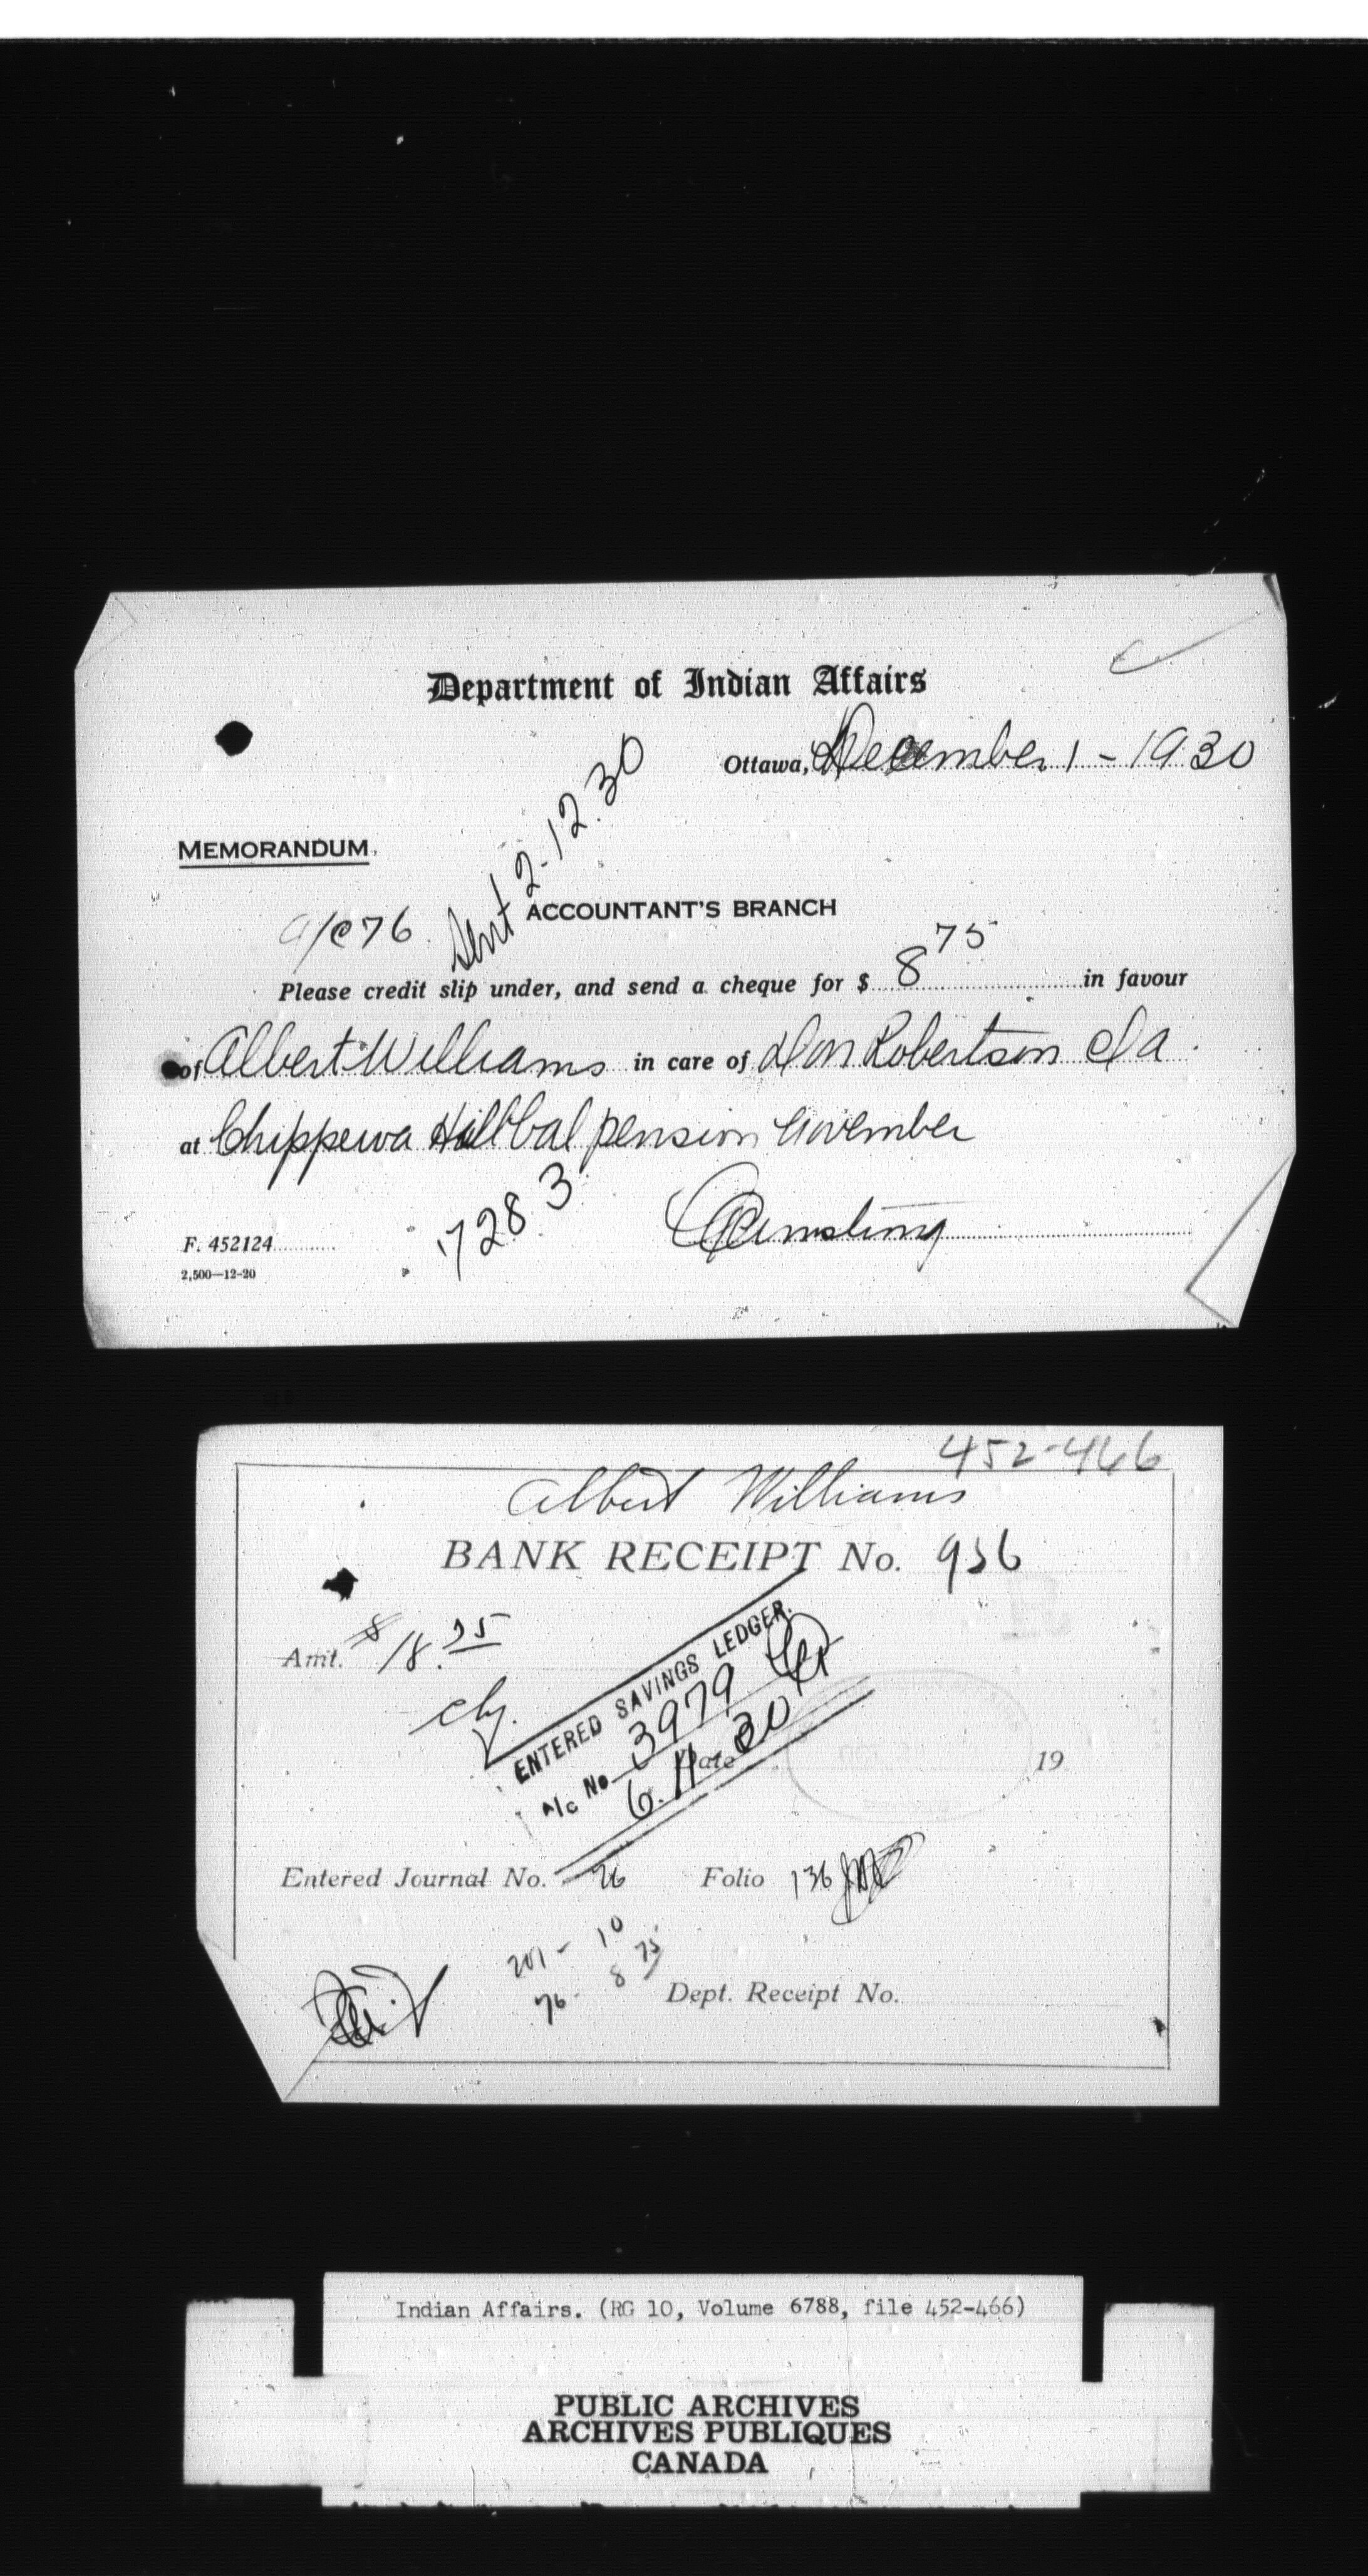 Department of Indian Affairs
Ottawa, December 1 - 1930
MEMORANDUM.
Sent 2-12.30
ACCOUNTANT'S BRANCH
a/c 76
Please credit slip under, and send a cheque for $ 8 75 in favour
of Albert Williams in care of Don Robertson IA
at Chippewa Hill bal pension November
17283
F. 452124
2,500—12-20
452-466
Albert Williams
BANK RECEIPT No. 936
Amt. 18.75
ENTERED SAVINGS LEDGER.
A/c No 3979
6.11.30
Date 19
Entered Journal No. 26 Folio 136
201 - 10
76 - 8 75
Dept. Receipt No.
Indian Affairs. (RG 10, Volume 6788, file 452-466)
PUBLIC ARCHIVES
ARCHIVES PUBLIQUES
CANADA